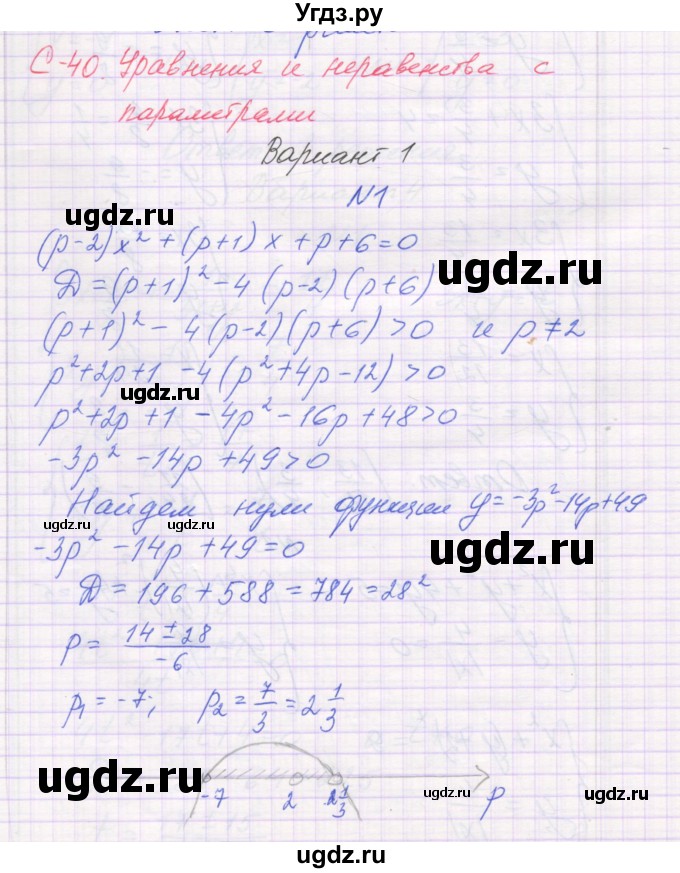 Угдз.ру
С-40. Уравнения и неравенства с
параметрами
Вариант 1
N1
ugdz.ru
(p-2)x² + (p+1)x + p+6=0
ugdz.ru
D = (p+1)² - 4(p-2)(p+6)
(p+1)² - 4(p-2)(p+6) > 0 и p ≠ 2
p²+2p+1 - 4(p²+4p-12) > 0
ugdz.ru
p²+2p+1 - 4p² - 16p + 48 > 0
-3p² - 14p + 49 > 0
Найдем нули функции y = -3p²-14p+49
ugdz.ru
-3p² - 14p + 49 = 0
ugdz.ru
D = 196 + 588 = 784 = 28²
p = (14 ± 28)/-6
ugdz.ru
p₁ = -7; p₂ = 7/3 = 2 1/3
ugdz.ru
-7 2 2 1/3 p
ugdz.ru
ugdz.ru